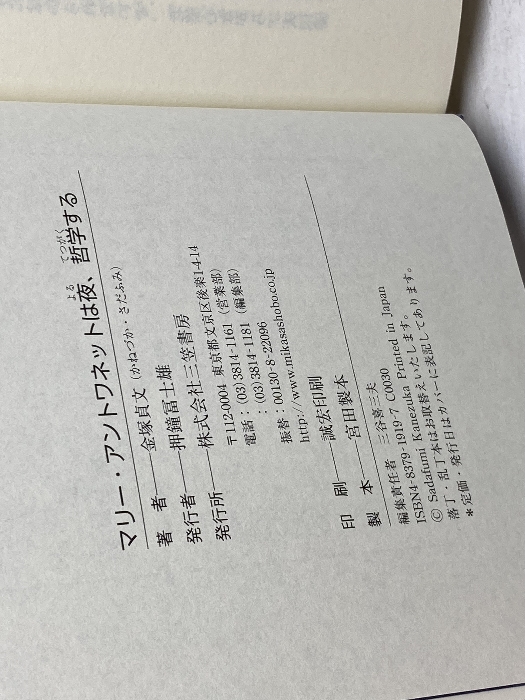 マリー・アントワネットは夜、哲学する
よる てつがく
著 者――金塚貞文（かねづか・さだふみ）
発行者――押鐘冨士雄
発行所――株式会社三笠書房
〒112-0004 東京都文京区後楽1-4-14
電話：(03)3814-1161（営業部）
：(03)3814-1181（編集部）
振替：00130-8-22096
http://www.mikasashobo.co.jp
印 刷――誠宏印刷
製 本――宮田製本
編集責任者 三谷喜三夫
ISBN4-8379-1919-7 C0030
© Sadafumi Kanezuka Printed in Japan
落丁・乱丁本はお取替えいたします。
＊定価・発行日はカバーに表記してあります。